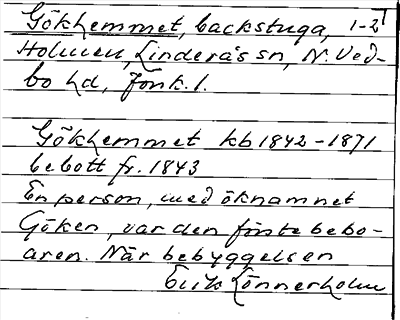 Gökhemmet, backstuga, 1-21
Holmen, Linderås sn, N. Ved-
bo hd, Jönk. l.
Gökhemmet kb 1842-1871
bebott fr. 1843
En person, med öknamnet
Göken, var den förste bebo-
aren. När bebyggelsen
Erik Lönnerholm